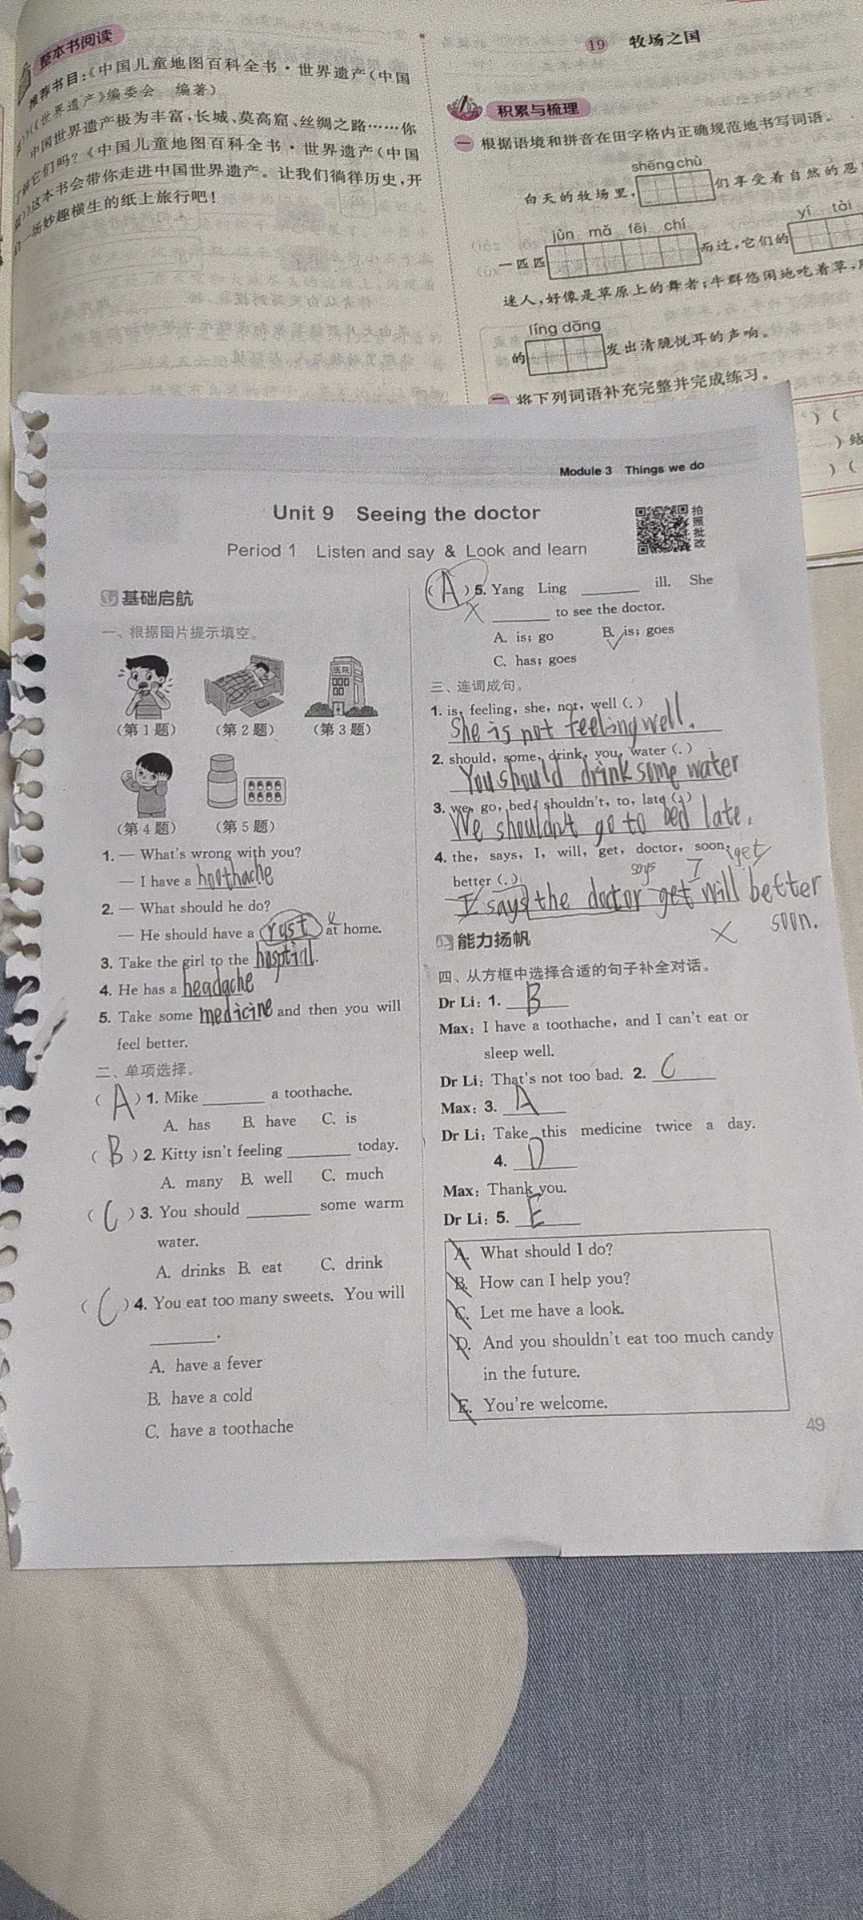 整本书阅读
推荐书目:《中国儿童地图百科全书·世界遗产(中国
《世界遗产》编委会 编著)
中国世界遗产极为丰富,长城、莫高窟、丝绸之路……你
了解它们吗?《中国儿童地图百科全书·世界遗产(中国
这本书会带你走进中国世界遗产。让我们徜徉历史,开
一场妙趣横生的纸上旅行吧!
19 牧场之国
积累与梳理
一 根据语境和拼音在田字格内正确规范地书写词语。
shēng chù
白天的牧场里, 们享受着自然的恩
jùn mǎ fēi chí
yí tài
一匹匹 而过,它们的
迷人,好像是草原上的舞者;牛群悠闲地吃着草,
líng dāng
的 发出清脆悦耳的声响。
二 将下列词语补充完整并完成练习。
) (
) 结
) (
Module 3 Things we do
Unit 9 Seeing the doctor
拍照批改
Period 1 Listen and say & Look and learn
基础启航
一、根据图片提示填空。
医院
(第1题) (第2题) (第3题)
(第4题) (第5题)
1. — What's wrong with you?
— I have a hoothache
2. — What should he do?
— He should have a rust e at home.
3. Take the girl to the hosptial.
4. He has a headache
5. Take some medicine and then you will
feel better.
二、单项选择。
( A ) 1. Mike ______ a toothache.
A. has B. have C. is
( B ) 2. Kitty isn't feeling ______ today.
A. many B. well C. much
( C ) 3. You should ______ some warm
water.
A. drinks B. eat C. drink
( C ) 4. You eat too many sweets. You will
______.
A. have a fever
B. have a cold
C. have a toothache
( A ) 5. Yang Ling ______ ill. She
______ to see the doctor.
A. is; go B. is; goes
C. has; goes
三、连词成句。
1. is, feeling, she, not, well (.)
She is not feeling well.
2. should, some, drink, you, water (.)
You should drink some water
3. we, go, bed, shouldn't, to, late (.)
We shouldn't go to bed late.
4. the, says, I, will, get, doctor, soon,
better (.)
says I get
I says the doctor get will better
soon.
能力扬帆
四、从方框中选择合适的句子补全对话。
Dr Li: 1. B
Max: I have a toothache, and I can't eat or
sleep well.
Dr Li: That's not too bad. 2. C
Max: 3. A
Dr Li: Take this medicine twice a day.
4. D
Max: Thank you.
Dr Li: 5. E
A. What should I do?
B. How can I help you?
C. Let me have a look.
D. And you shouldn't eat too much candy
in the future.
E. You're welcome.
49